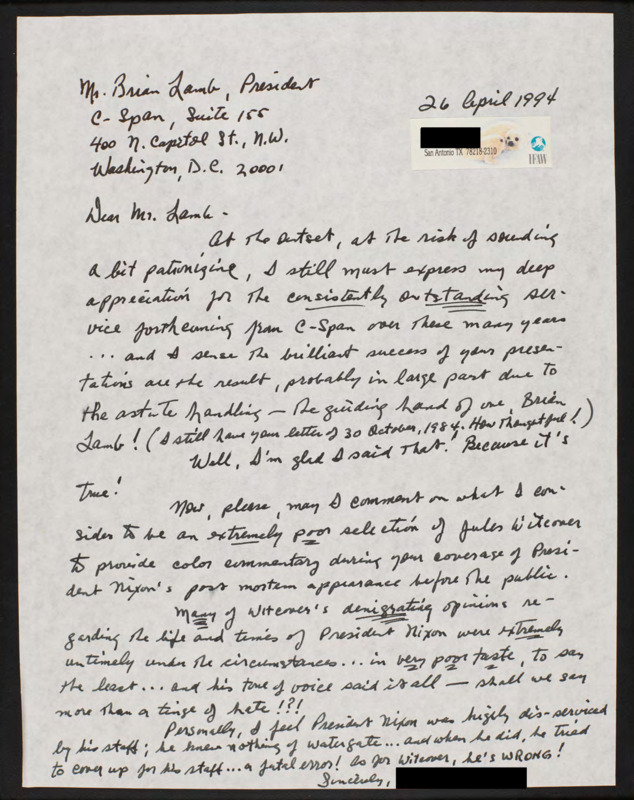 Mr. Brian Lamb, President
C-Span, Suite 155
400 N. Capitol St., N.W.
Washington, D.C. 20001
26 April 1994
San Antonio TX 78218-2310
IFAW
Dear Mr. Lamb -
At the outset, at the risk of sounding
a bit patronizing, I still must express my deep
appreciation for the consistently outstanding ser-
vice forthcoming from C-Span over these many years
... and I sense the brilliant success of your presen-
tations are the result, probably in large part due to
the astute handling - the guiding hand of one Brian
Lamb! (I still have your letter of 30 October, 1984. How thoughtful!)
Well, I'm glad I said that! Because it's
true!
Now, please, may I comment on what I con-
sider to be an extremely poor selection of Jules Witcover
to provide color commentary during your coverage of Presi-
dent Nixon's post mortem appearance before the public.
Many of Witcover's denigrating opinions re-
garding the life and times of President Nixon were extremely
untimely under the circumstances... in very poor taste, to say
the least... and his tone of voice said it all - shall we say
more than a tinge of hate!!!
Personally, I feel President Nixon was highly dis-serviced
by his staff; he knew nothing of Watergate... and when he did, he tried
to cover up for his staff... a fatal error! As for Witcover, he's WRONG!
Sincerely,